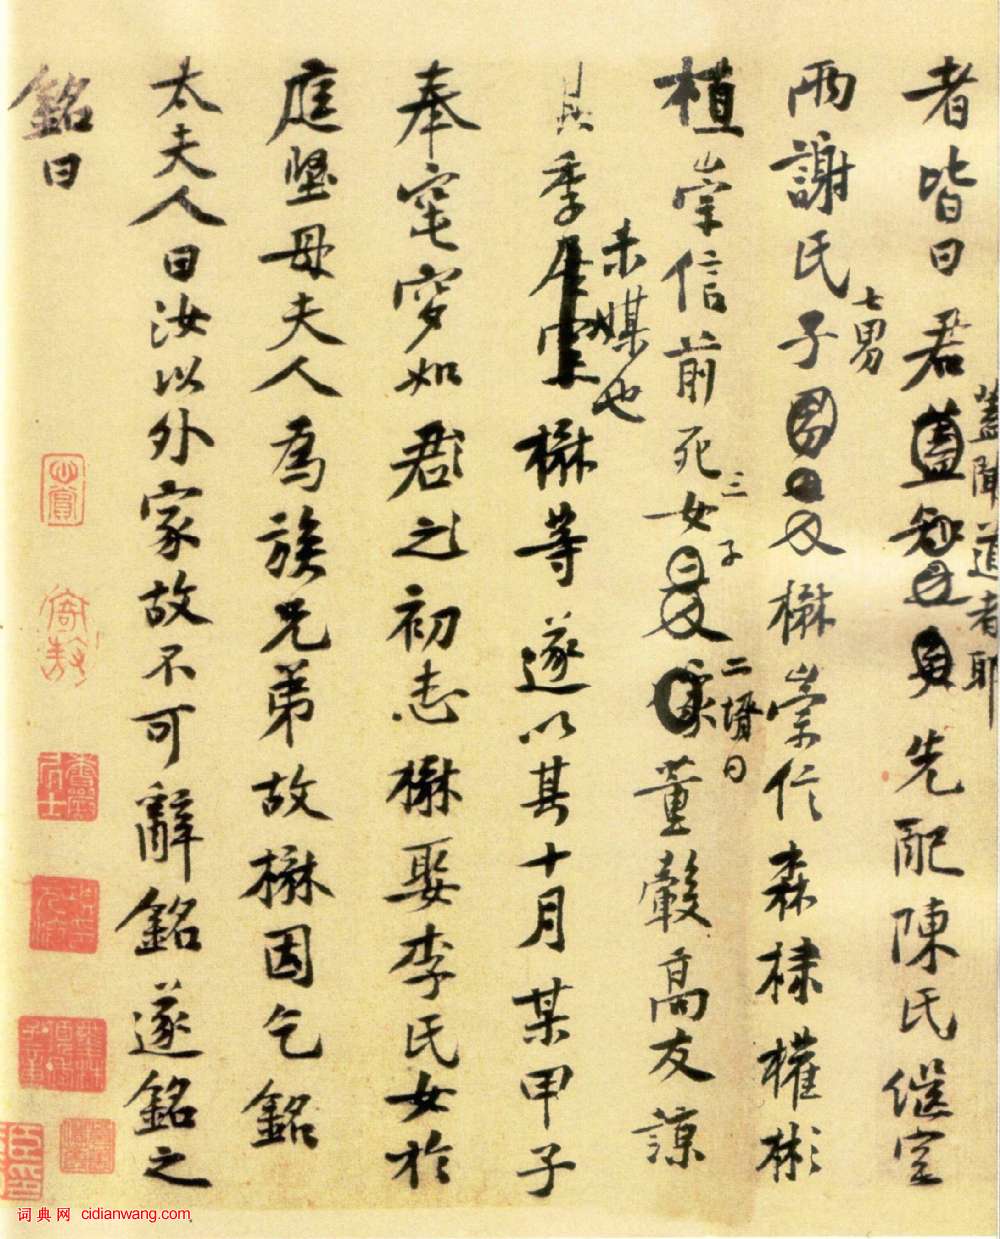 者皆曰君蓋先配陳氏繼室
蓋聞道者耶
兩謝氏子男楙崇信森棣權彬
七男
植崇信前死女董轂高友諒
三子
二壻曰
其季居室楙等遂以其十月某甲子
未媒也
奉窀穸如君之初志楙娶李氏女於
庭堅母夫人為族兄弟故楙因乞銘
太夫人曰汝以外家故不可辭銘遂銘之
銘曰
心賞
词典网 cidianwang.com